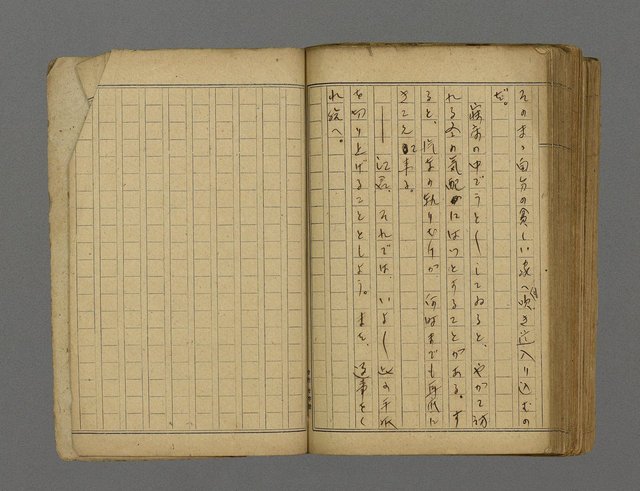 そのまゝ自分の貧しい家へ吹き入り込むの
だ。
寝床の中でうと〳〵してゐると、やがて訪
れる冬の気配にはつとすることがある。す
ると、汽車の軋りばかりが何時までも耳底に
きこえて来る。
―― 江君、それでは、いよ〳〵此の手紙
を切り上げることとしよう。また、返事をく
れ給へ。